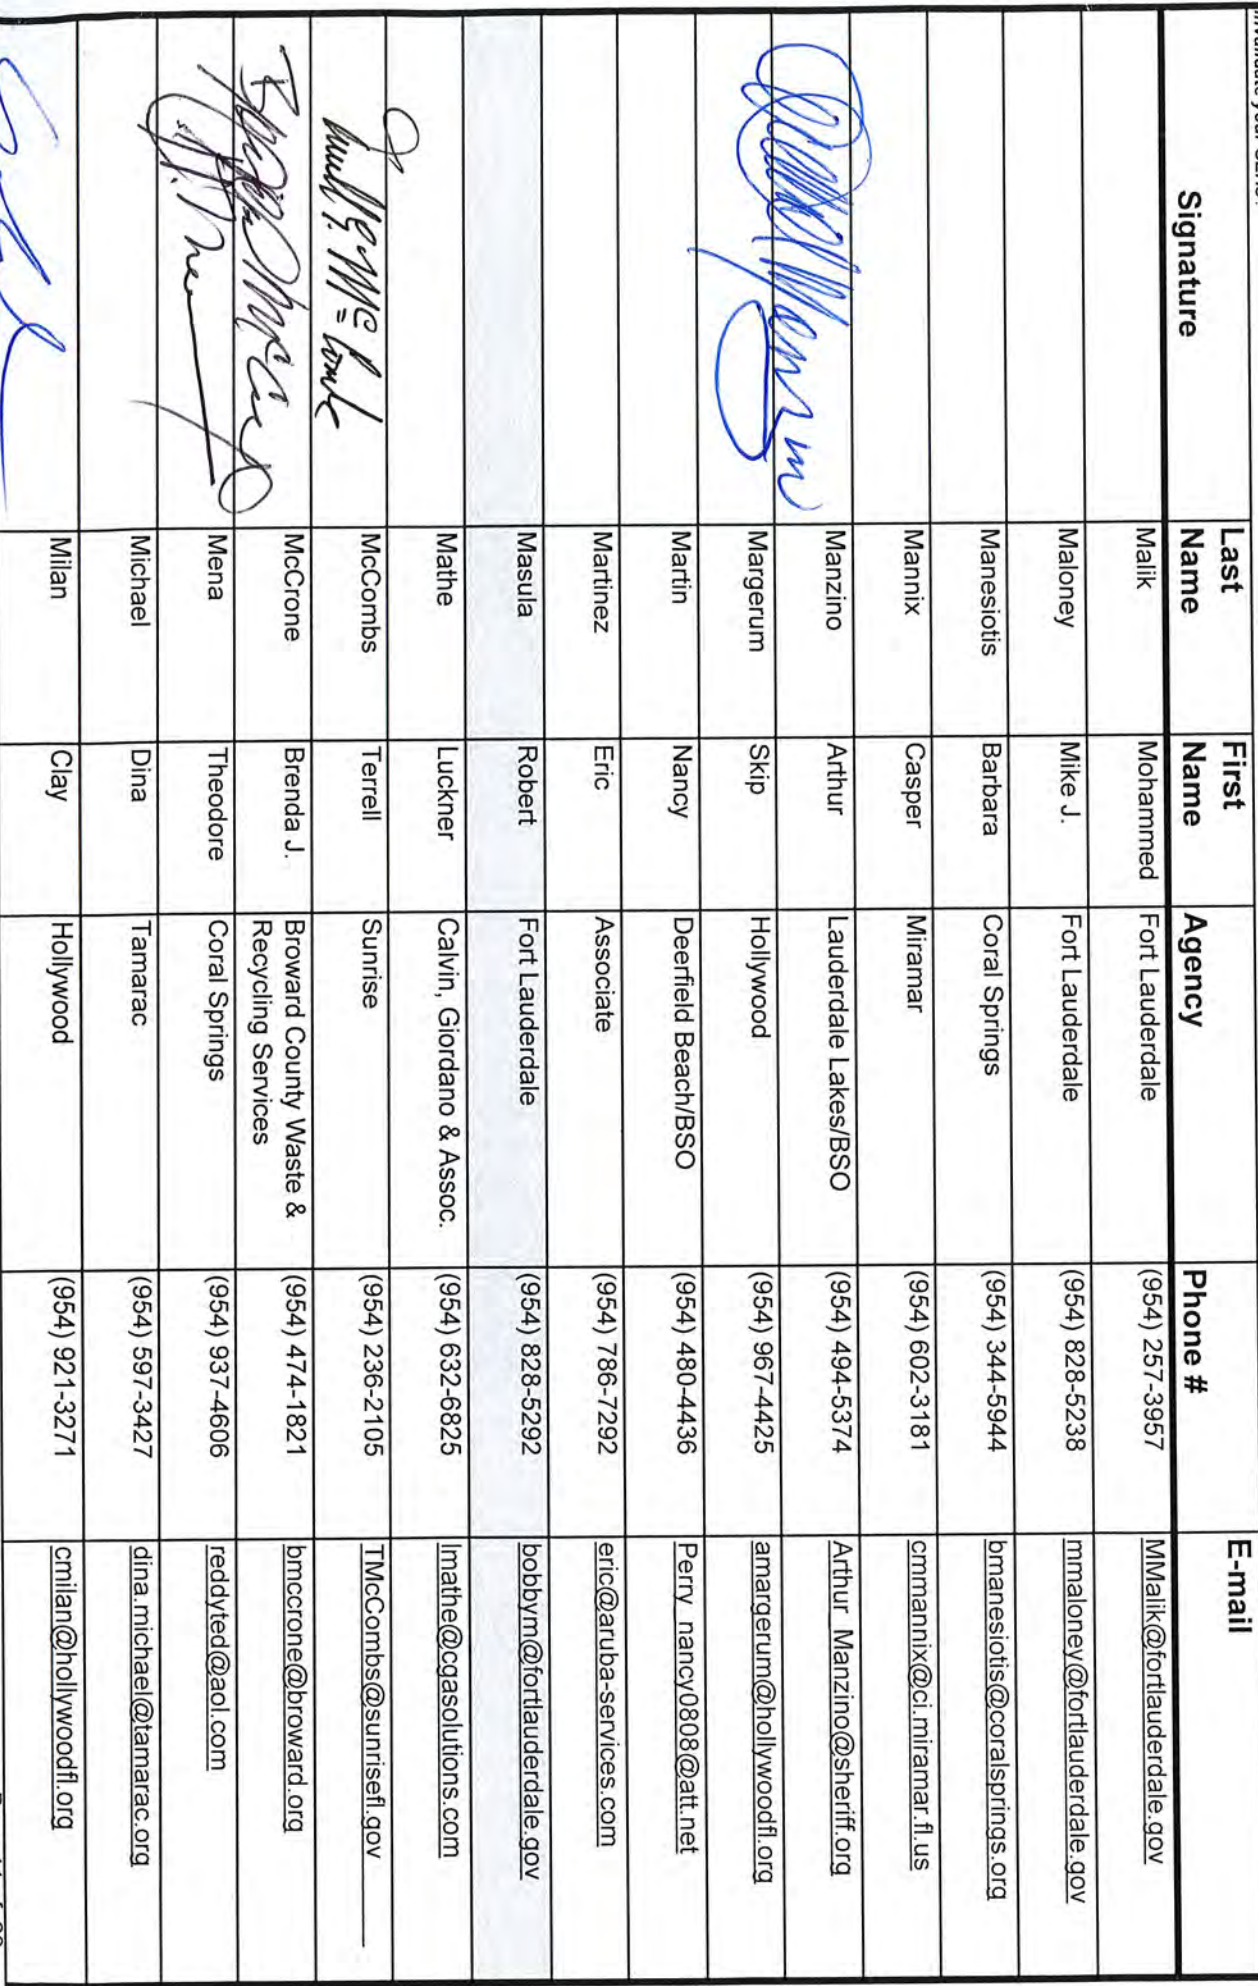 invalidate your CEHs.
Signature Last Name First Name Agency Phone # E-mail
Malik Mohammed Fort Lauderdale (954) 257-3957 MMalik@fortlauderdale.gov
Maloney Mike J. Fort Lauderdale (954) 828-5238 mmaloney@fortlauderdale.gov
Manesiotis Barbara Coral Springs (954) 344-5944 bmanesiotis@coralsprings.org
Mannix Casper Miramar (954) 602-3181 cmmannix@ci.miramar.fl.us
Manzino Arthur Lauderdale Lakes/BSO (954) 494-5374 Arthur_Manzino@sheriff.org
Margerum Skip Hollywood (954) 967-4425 amargerum@hollywoodfl.org
Martin Nancy Deerfield Beach/BSO (954) 480-4436 Perry_nancy0808@att.net
Martinez Eric Associate (954) 786-7292 eric@aruba-services.com
Masula Robert Fort Lauderdale (954) 828-5292 bobbym@fortlauderdale.gov
Mathe Luckner Calvin, Giordano & Assoc. (954) 632-6825 lmathe@cgasolutions.com
McCombs Terrell Sunrise (954) 236-2105 TMcCombs@sunrisefl.gov
McCrone Brenda J. Broward County Waste & Recycling Services (954) 474-1821 bmccrone@broward.org
Mena Theodore Coral Springs (954) 937-4606 reddyted@aol.com
Michael Dina Tamarac (954) 597-3427 dina.michael@tamarac.org
Milan Clay Hollywood (954) 921-3271 cmilan@hollywoodfl.org